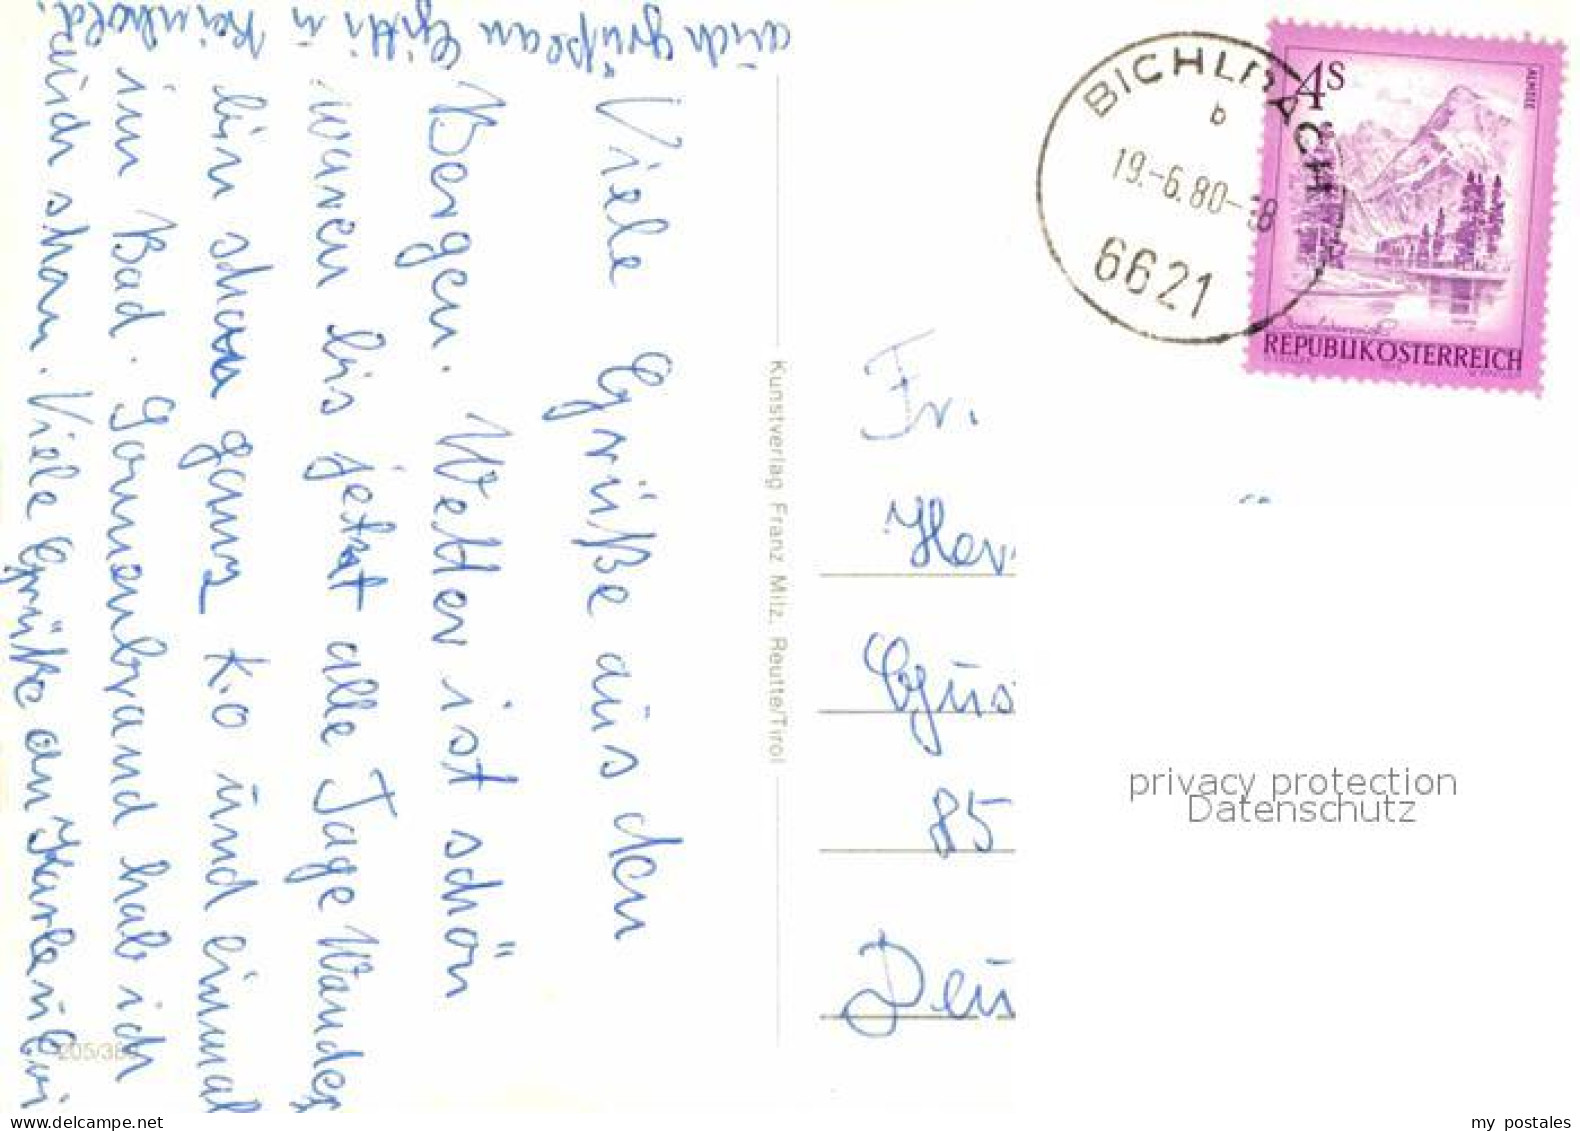 Viele Grüße aus den
Bergen. Wetter ist schön
waren bis jetzt alle Tage Wander
bin schon ganz K.o und einmal
im Bad. Sonnenbrand hab ich
auch schon. Viele Grüße an
auch Grüße an Gitti u Reinhold.
205/38
Kunstverlag Franz Milz, Reutte/Tirol
BICHLBACH
b
19.-6.80-18
6621
4S
ALMSEE
REPUBLIK ÖSTERREICH
Fr.
Her
Gus
85
Deu
privacy protection
Datenschutz
my postales